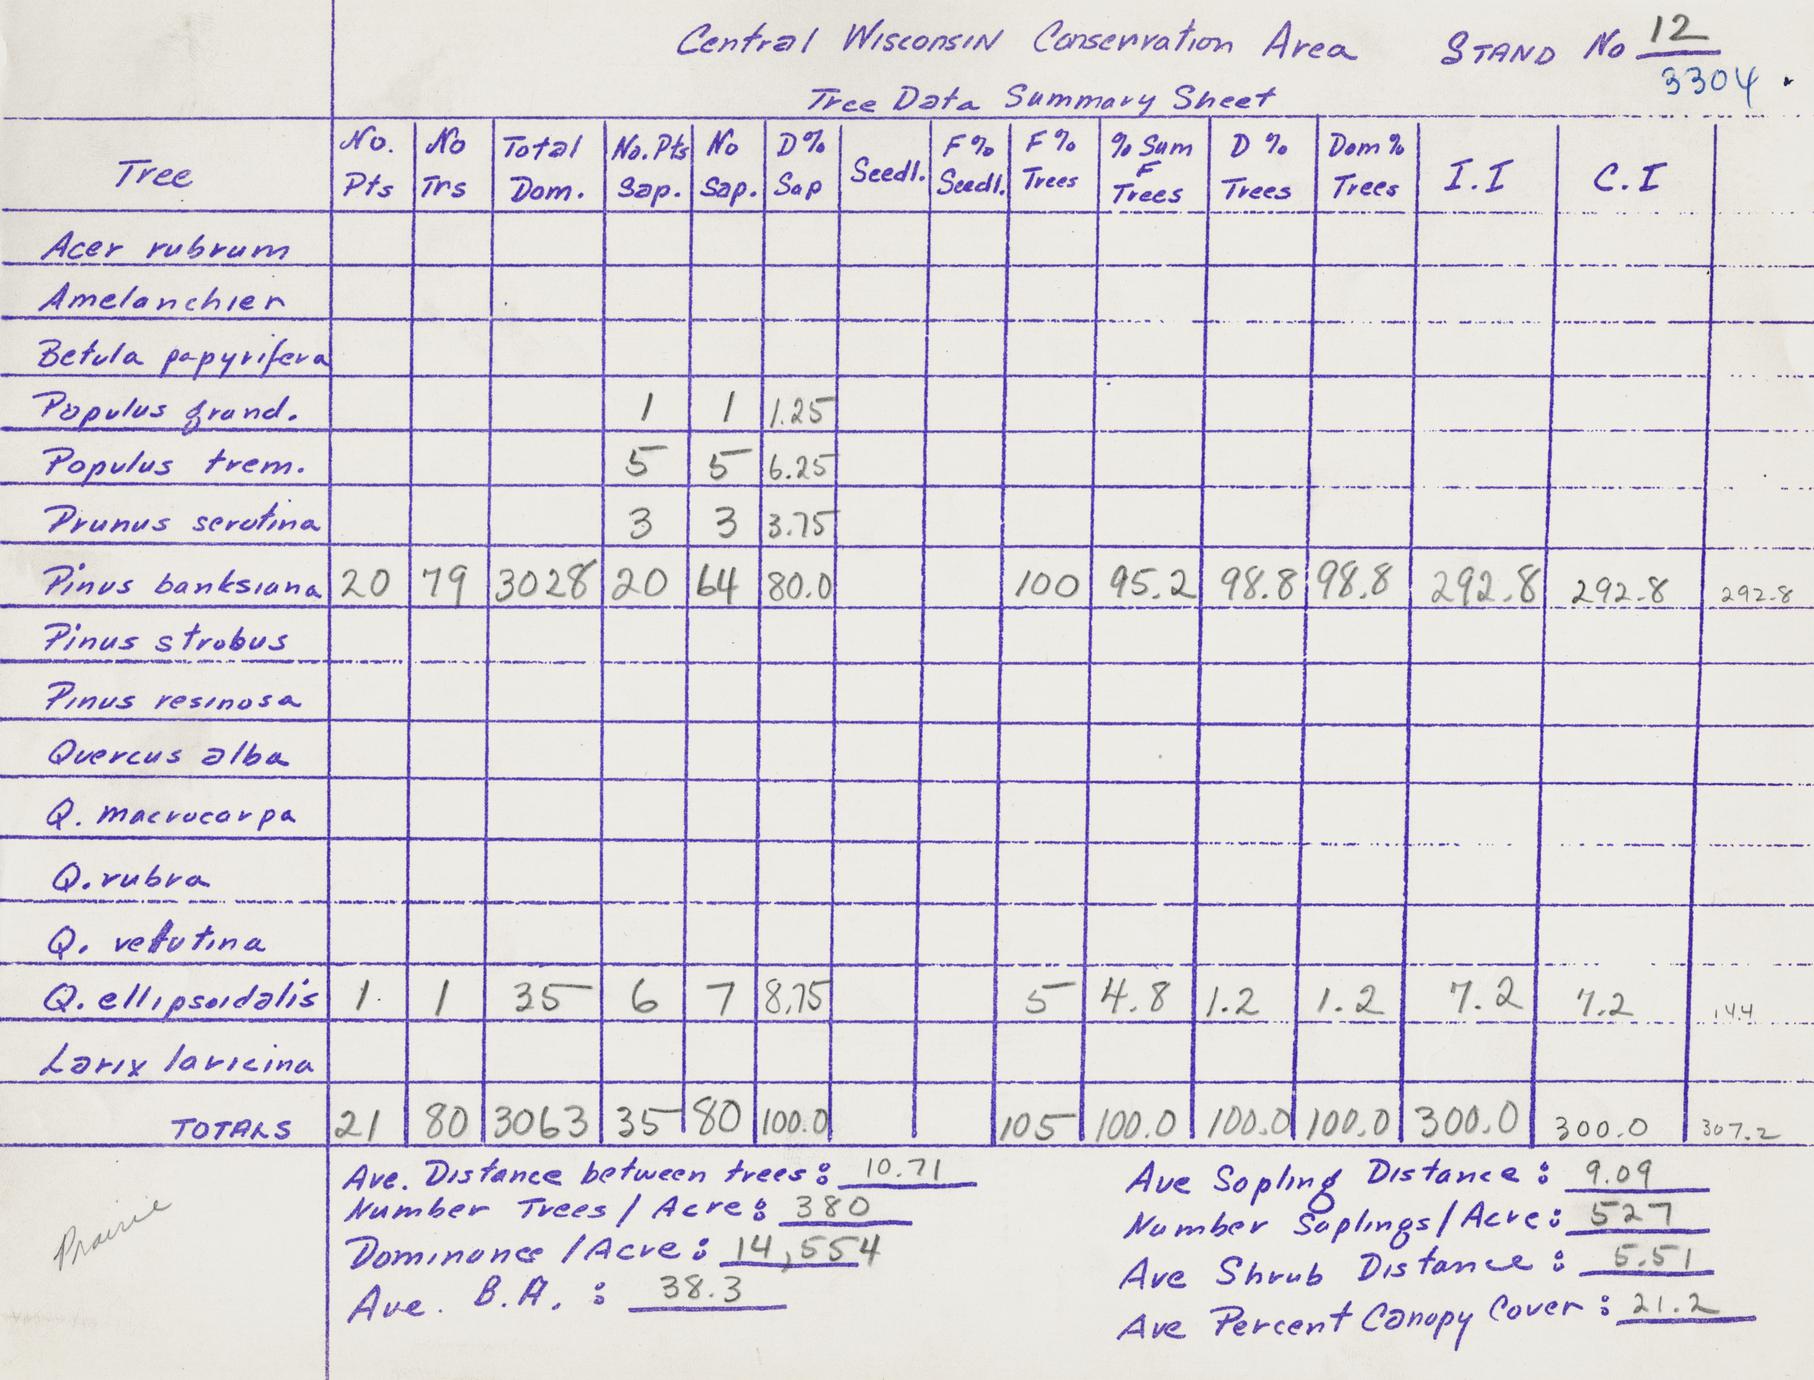 Central Wisconsin Conservation Area STAND No 12
3304
Tree Data Summary Sheet
Tree No. Pts No Trs Total Dom. No. Pts Sap. No Sap. D% Sap Seedl. F% Seedl. F% Trees % Sum F Trees D % Trees Dom % Trees I.I C.I
Acer rubrum
Amelanchier
Betula papyrifera
Populus grand. 1 1 1.25
Populus trem. 5 5 6.25
Prunus serotina 3 3 3.75
Pinus banksiana 20 79 3028 20 64 80.0 100 95.2 98.8 98.8 292.8 292.8 292.8
Pinus strobus
Pinus resinosa
Quercus alba
Q. macrocarpa
Q. rubra
Q. velutina
Q. ellipsoidalis 1 1 35 6 7 8.75 5 4.8 1.2 1.2 7.2 7.2 14.4
Larix laricina
TOTALS 21 80 3063 35 80 100.0 105 100.0 100.0 100.0 300.0 300.0 307.2
Ave. Distance between trees: 10.71 Ave Sapling Distance: 9.09
Number Trees / Acre: 380 Number Saplings / Acre: 527
Dominance / Acre: 14,554 Ave Shrub Distance: 5.51
Ave. B.A.: 38.3 Ave Percent Canopy Cover: 21.2
Prairie